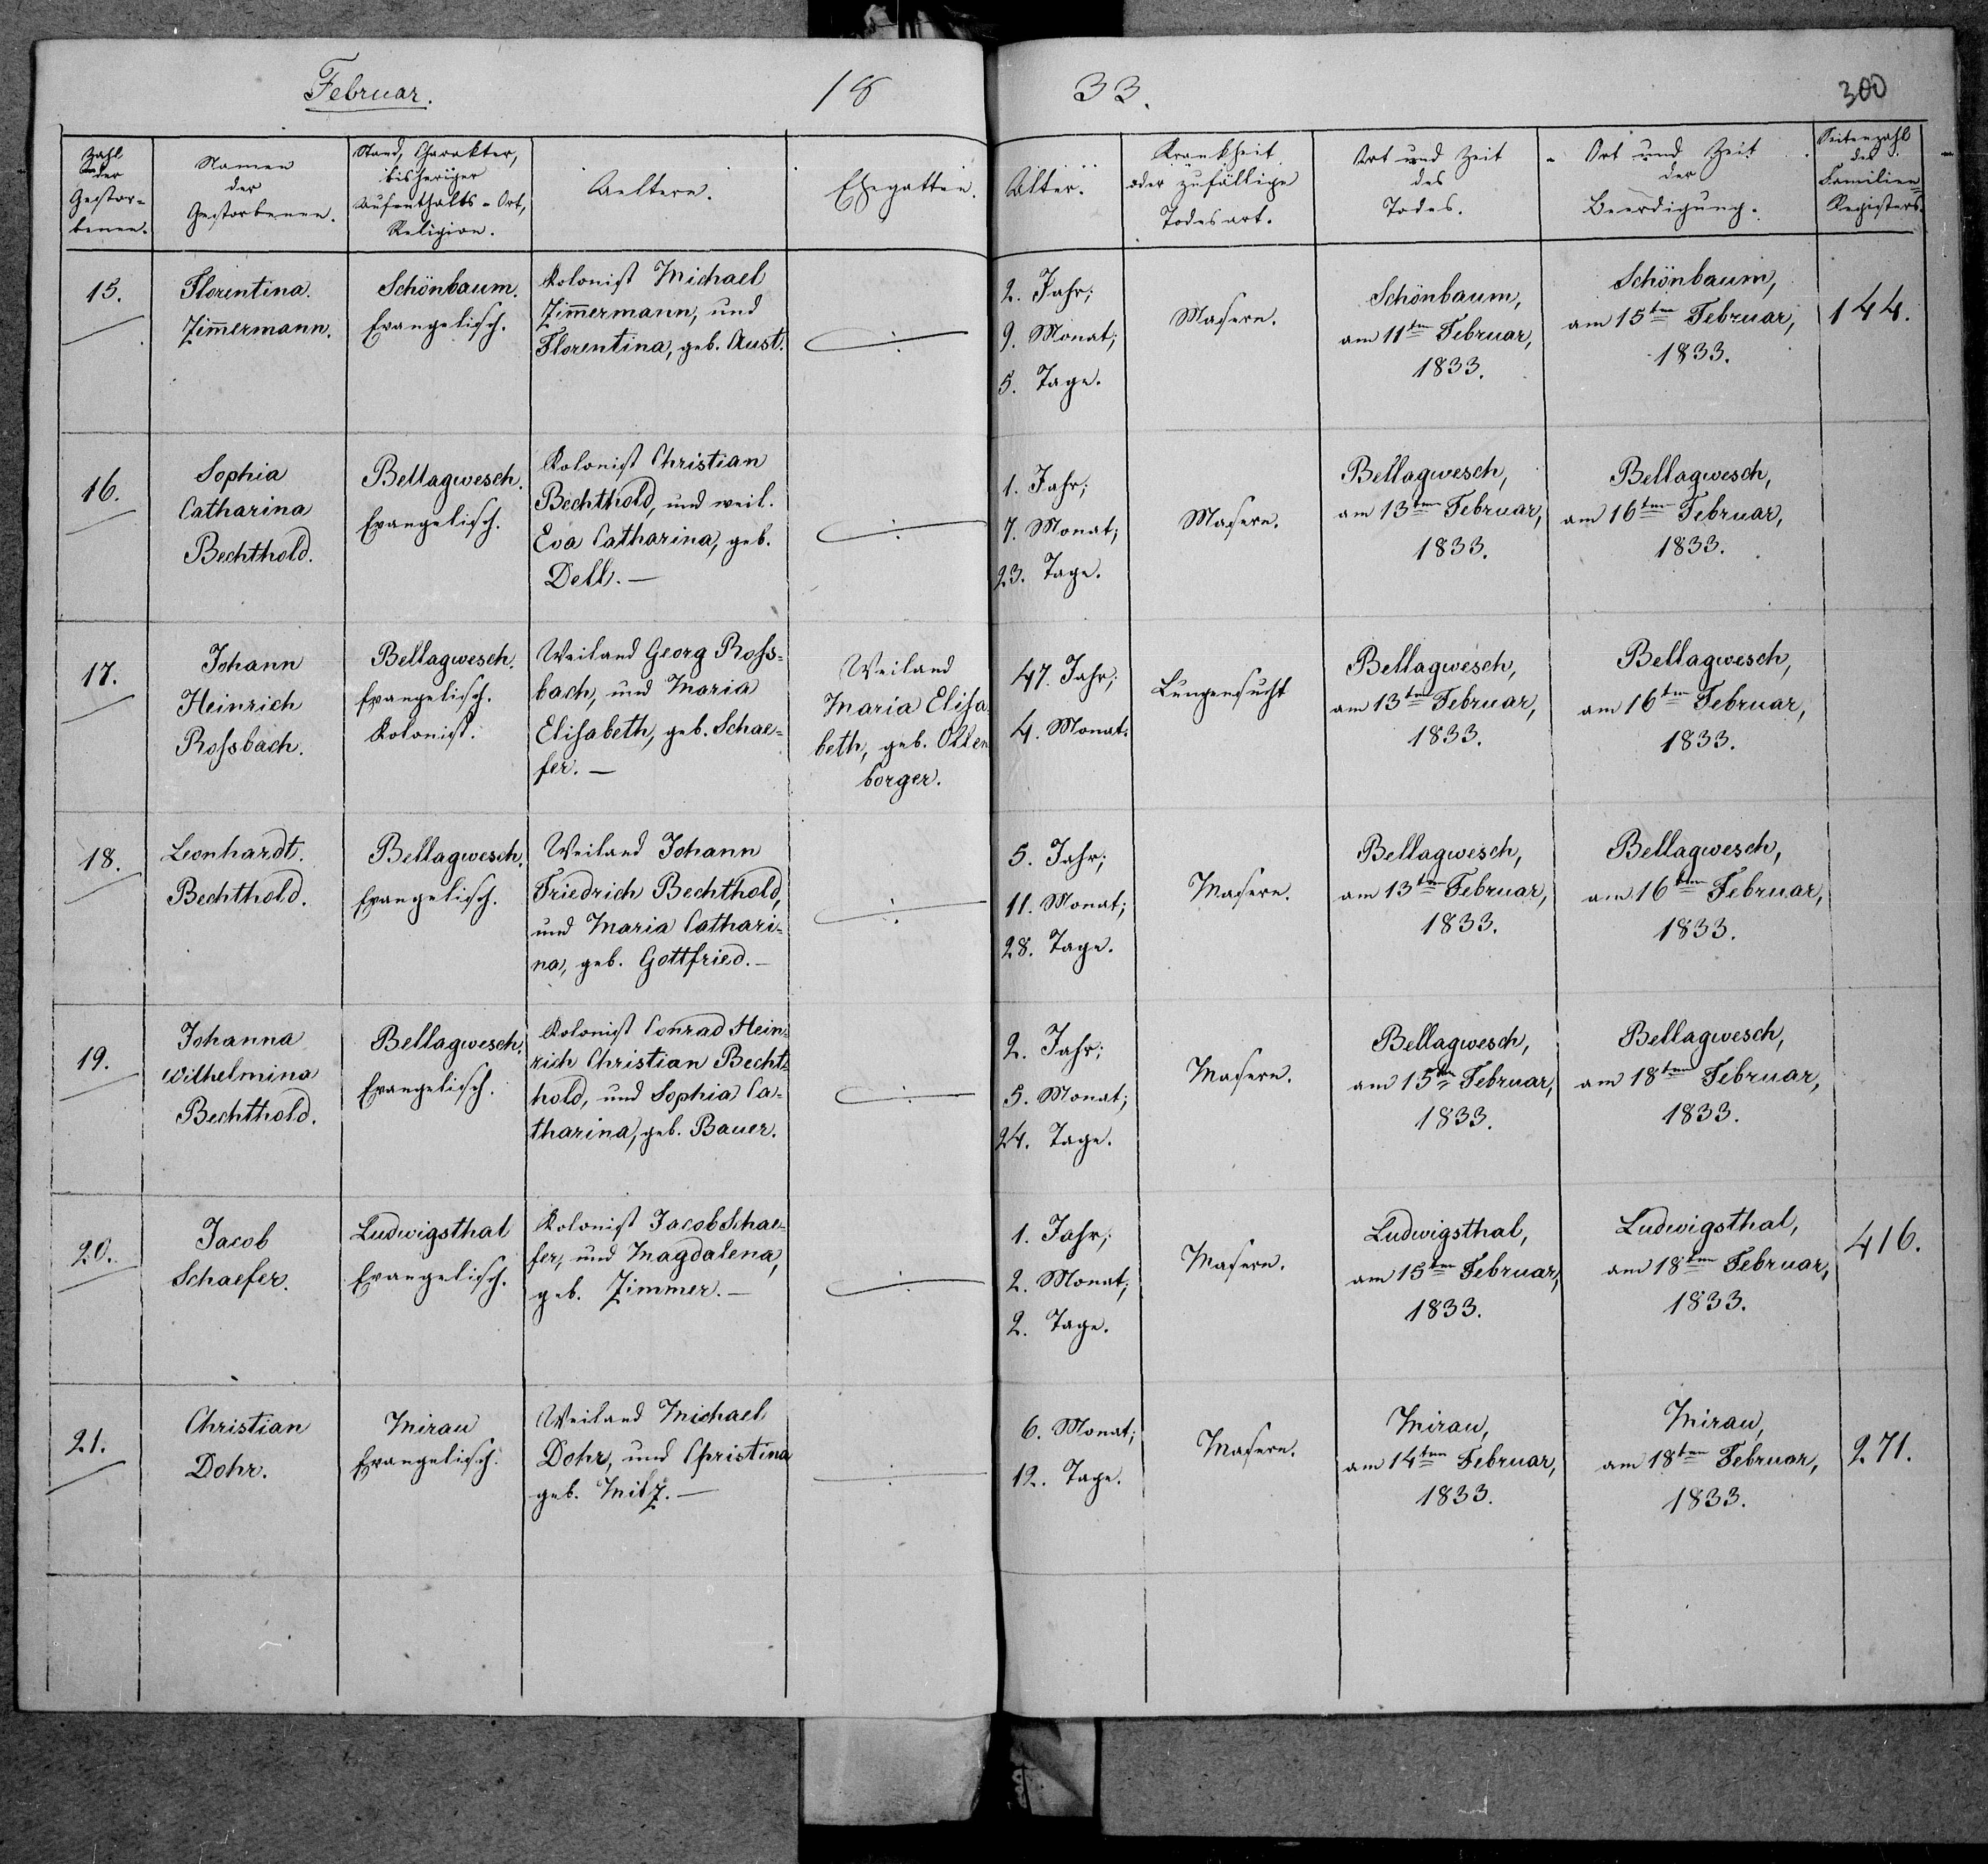 Februar.
18
33.
300
Zahl
der
Gestor-
benen.
Namen
der
Gestorbenen.
Stand, Charakter,
bisheriger
Aufenthalts-Ort,
Religion.
Aeltern.
Ehegatten.
Alter.
Krankheit
oder zufällige
Todesart.
Ort und Zeit
des
Todes.
Ort und Zeit
der
Beerdigung.
Seitenzahl
des
Familien-
Registers.
15.
Florentina
Zim̅ermann.
Schönbaum.
Evangelisch.
Kolonist Michael
Zim̅ermann, und
Florentina, geb. Aust.
2. Jahr;
9. Monat;
5. Tage.
Masern.
Schönbaum,
am 11ten Februar,
1833.
Schönbaum,
am 15ten Februar,
1833.
144.
16.
Sophia
Catharina
Bechthold.
Bellagwesch.
Evangelisch.
Kolonist Christian
Bechthold, und weil.
Eva Catharina, geb.
Dell. —
1. Jahr;
7. Monat;
23. Tage.
Masern.
Bellagwesch,
am 13ten Februar,
1833.
Bellagwesch,
am 16ten Februar,
1833.
17.
Johann
Heinrich
Rossbach.
Bellagwesch.
Evangelisch.
Kolonist.
Weiland Georg Ross-
bach, und Maria
Elisabeth, geb. Schae-
fer. —
Weiland
Maria Elisa-
beth, geb. Ollen
borger.
47. Jahr;
4. Monat.
Lungensucht
Bellagwesch,
am 13ten Februar,
1833.
Bellagwesch,
am 16ten Februar,
1833.
18.
Leonhardt.
Bechthold.
Bellagwesch.
Evangelisch.
Weiland Johann
Friedrich Bechthold,
und Maria Cathari-
na, geb. Gottfried. —
5. Jahr;
11. Monat;
28. Tage.
Masern.
Bellagwesch,
am 13ten Februar,
1833.
Bellagwesch,
am 16ten Februar,
1833.
19.
Johanna
Wilhelmina
Bechthold.
Bellagwesch.
Evangelisch.
Kolonist Conrad Hein-
rich Christian Becht-
hold, und Sophia Ca-
tharina, geb. Bauer.
2. Jahr;
5. Monat;
24. Tage.
Masern.
Bellagwesch,
am 15ten Februar,
1833.
Bellagwesch,
am 18ten Februar,
1833.
20.
Jacob
Schaefer.
Ludwigsthal
Evangelisch.
Kolonist Jacob Schae-
fer, und Magdalena,
geb. Zimmer. —
1. Jahr;
2. Monat;
2. Tage.
Masern.
Ludwigsthal,
am 15ten Februar,
1833.
Ludwigsthal,
am 18ten Februar,
1833.
416.
21.
Christian
Dohr.
Mirau
Evangelisch.
Weiland Michael
Dohr, und Christina
geb. Milz. —
6. Monat;
12. Tage.
Masern.
Mirau,
am 14ten Februar,
1833.
Mirau,
am 18ten Februar,
1833.
271.